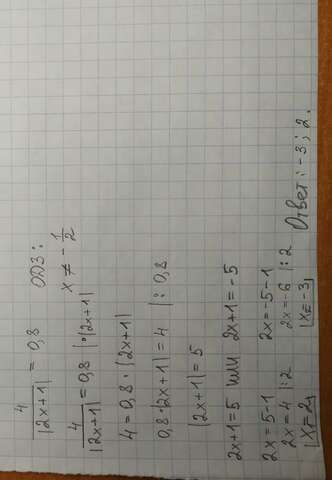 4/|2x+1| = 0,8 ОДЗ:
x ≠ -1/2
4/|2x+1| = 0,8 |·|2x+1|
4 = 0,8·|2x+1|
0,8·|2x+1| = 4 |:0,8
|2x+1| = 5
2x+1=5 или 2x+1=-5
2x=5-1 2x=-5-1
2x=4 |:2 2x=-6 |:2
x=2 x=-3
Ответ: -3; 2.